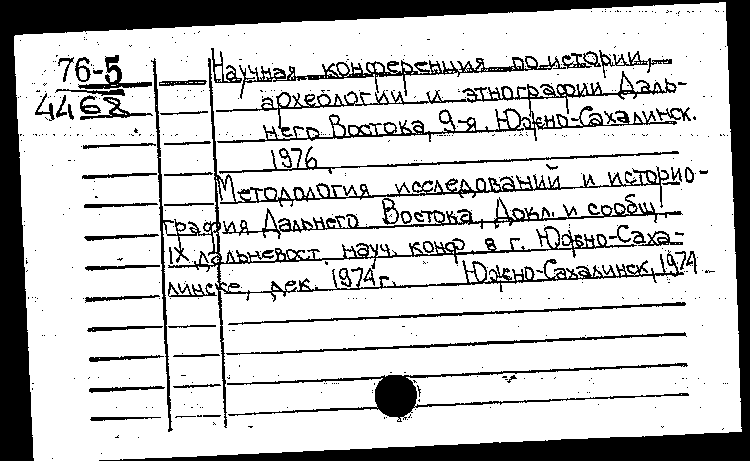 76-5
4468
Научная конференция по истории,
археологии и этнографии Даль-
него Востока, 9-я. Южно-Сахалинск.
1976.
Методология исследований и историо-
графия Дальнего Востока, Докл. и сообщ.
IX дальневост. науч. конф. в г. Южно-Саха-
линске, дек. 1974г. Южно-Сахалинск, 1974